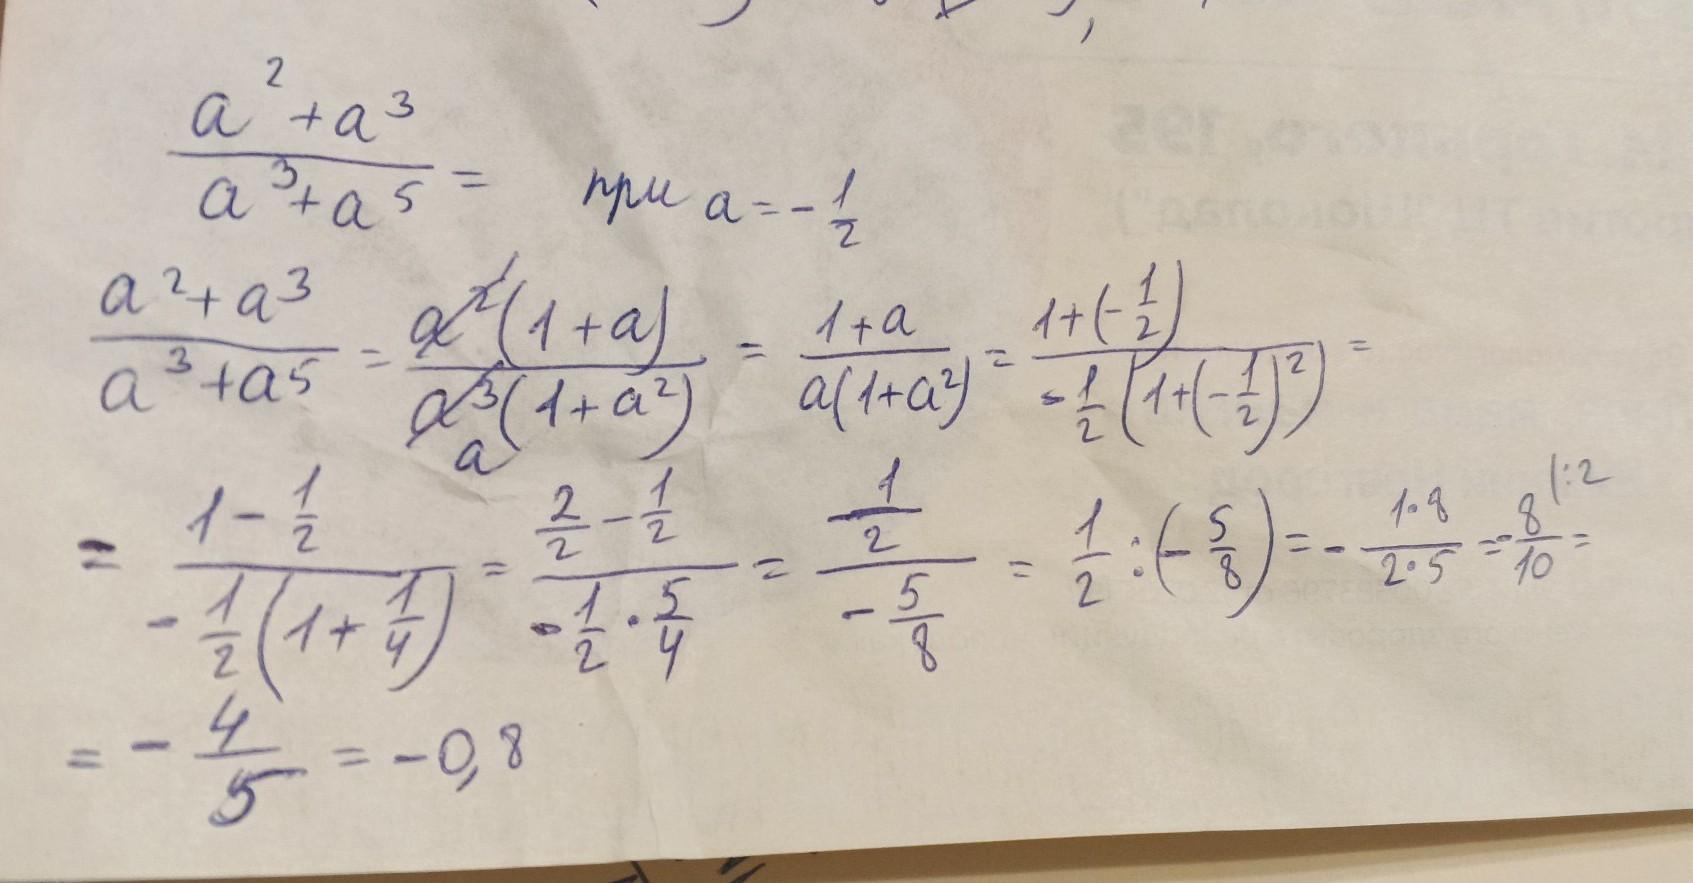 (a² + a³)/(a³ + a⁵) = при a = -1/2
(a² + a³)/(a³ + a⁵) = (a²(1 + a))/(a³(1 + a²)) = (1 + a)/(a(1 + a²)) = (1 + (-1/2))/(-1/2(1 + (-1/2)²)) =
= (1 - 1/2)/(-1/2(1 + 1/4)) = (2/2 - 1/2)/(-1/2 · 5/4) = (1/2)/(-5/8) = 1/2 : (-5/8) = -(1·8)/(2·5) = -8/10 |:2 =
= -4/5 = -0,8